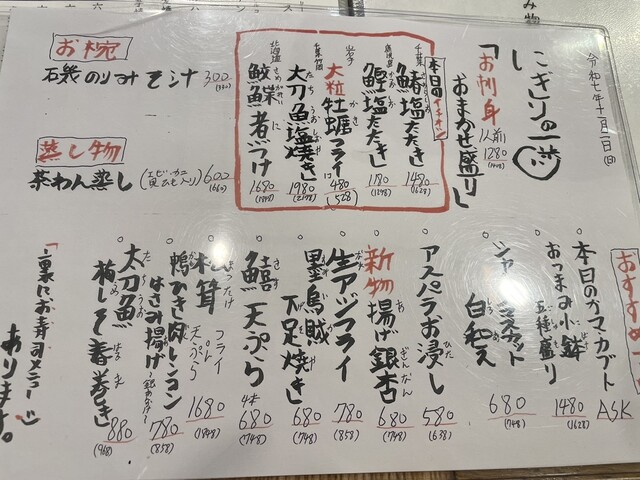 令和七年十二月一日(日)
にぎりの一歩
「お刺身
おまかせ盛り」
一人前
1280
(1408)
本日のイチオシ
千葉 鰆塩たたき 1480
(1628)
鰹塩たたき 1180
(1298)
岩手 大粒牡蠣フライ
かき
480
(528)
千葉 太刀魚塩焼き
たちうお しおやき
1980
(2178)
北海道 鮫鰈煮つけ
さめかれい に
1680
(1848)
お椀
磯のりみそ汁 300
(330)
蒸し物
茶わん蒸し
600
(660)
おすすめ
本日のカマ・カブト ASK
おつまみ小鉢
五種盛り
1480
(1628)
白和え
680
(748)
アスパラお浸し
ひた
580
(638)
新物
揚げ銀杏
あ ぎんなん
680
(748)
生アジフライ
なま
780
(858)
墨烏賊
下足焼き
680
(748)
鱚天ぷら
きす
4本
680
(748)
松茸
まつたけ
フライ
天ぷら
1680
(1848)
鴨ひき肉レンコン
はさみ揚げ
780
(858)
太刀魚
たちうお
梅しそ春巻き
うめ はるま
880
(968)
「裏にお寿司メニュー」
あります。